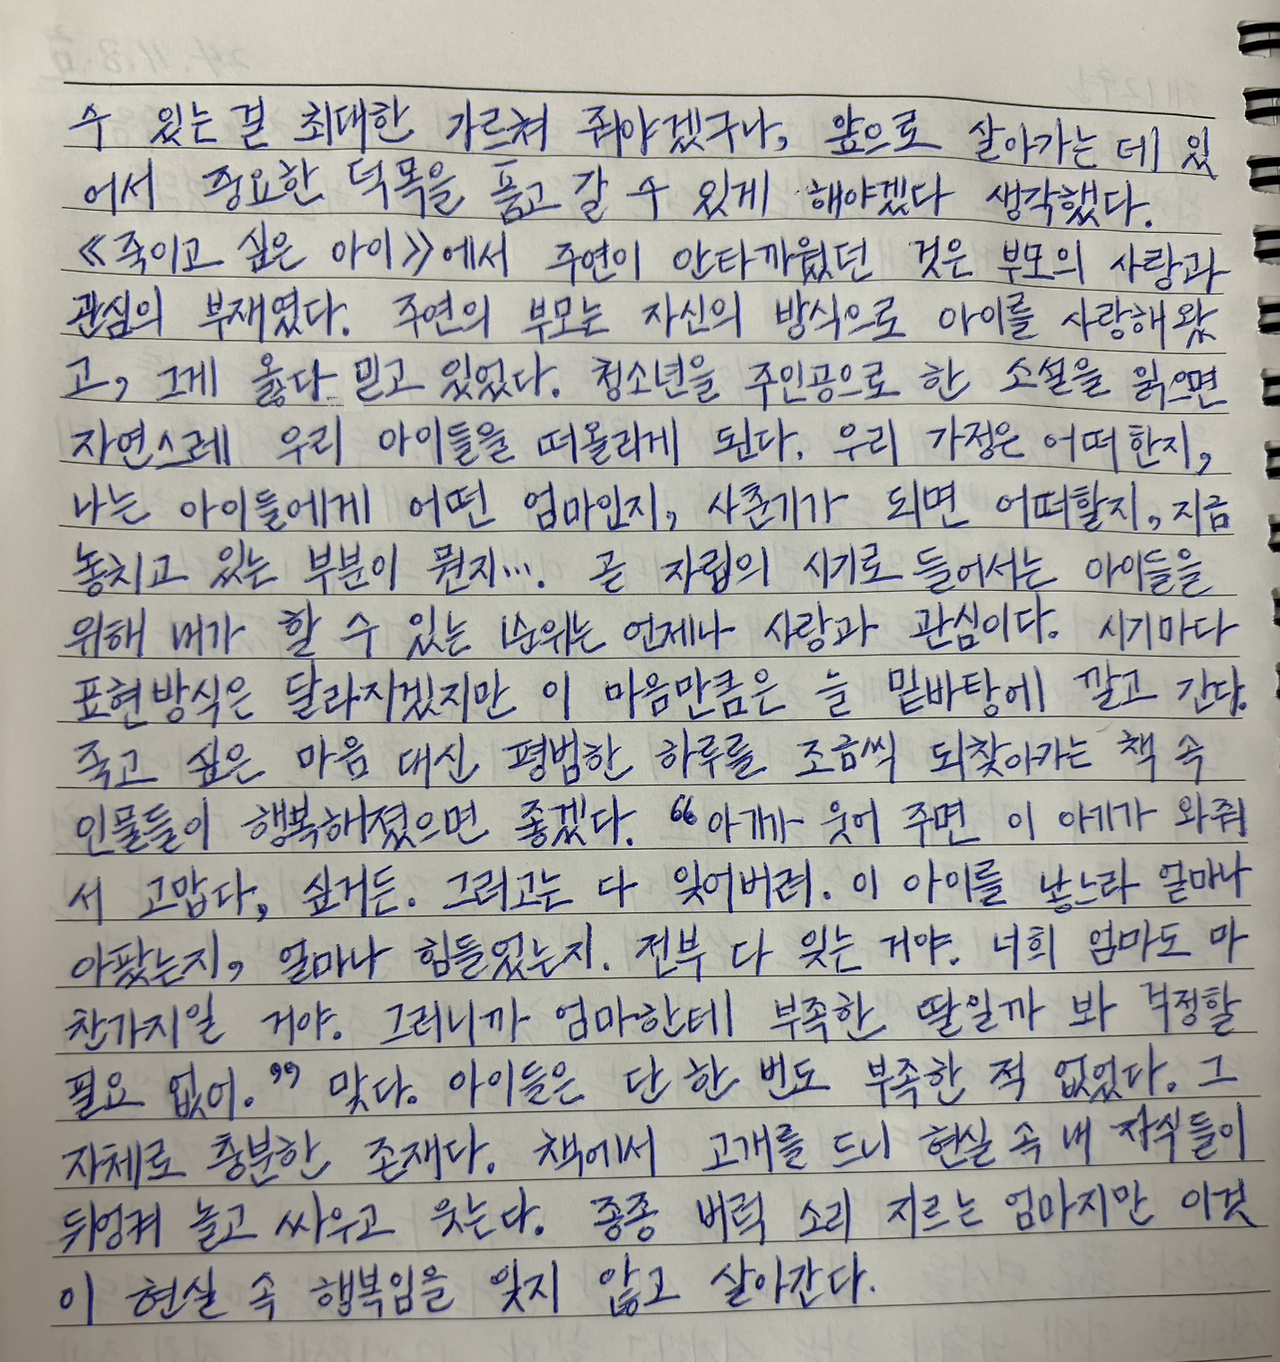 수 있는 걸 최대한 가르쳐 줘야겠구나, 앞으로 살아가는 데 있
어서 중요한 덕목을 품고 갈 수 있게 해야겠다 생각했다.
《죽이고 싶은 아이》에서 주연이 안타까웠던 것은 부모의 사랑과
관심의 부재였다. 주연의 부모는 자신의 방식으로 아이를 사랑해 왔
고, 그게 옳다 믿고 있었다. 청소년을 주인공으로 한 소설을 읽으면
자연스레 우리 아이들을 떠올리게 된다. 우리 가정은 어떠한지,
나는 아이들에게 어떤 엄마인지, 사춘기가 되면 어떠할지, 지금
놓치고 있는 부분이 뭔지···. 곧 자립의 시기로 들어서는 아이들을
위해 내가 할 수 있는 1순위는 언제나 사랑과 관심이다. 시기마다
표현방식은 달라지겠지만 이 마음만큼은 늘 밑바탕에 깔고 간다.
죽고 싶은 마음 대신 평범한 하루를 조금씩 되찾아가는 책 속
인물들이 행복해졌으면 좋겠다. “아기가 웃어 주면 이 아기가 와줘
서 고맙다, 싶거든. 그러고는 다 잊어버려. 이 아이를 낳느라 얼마나
아팠는지, 얼마나 힘들었는지. 전부 다 잊는 거야. 너희 엄마도 마
찬가지일 거야. 그러니까 엄마한테 부족한 딸일까 봐 걱정할
필요 없어.” 맞다. 아이들은 단 한 번도 부족한 적 없었다. 그
자체로 충분한 존재다. 책에서 고개를 드니 현실 속 내 자식들이
뒤엉켜 놀고 싸우고 웃는다. 종종 버럭 소리 지르는 엄마지만 이것
이 현실 속 행복임을 잊지 않고 살아간다.